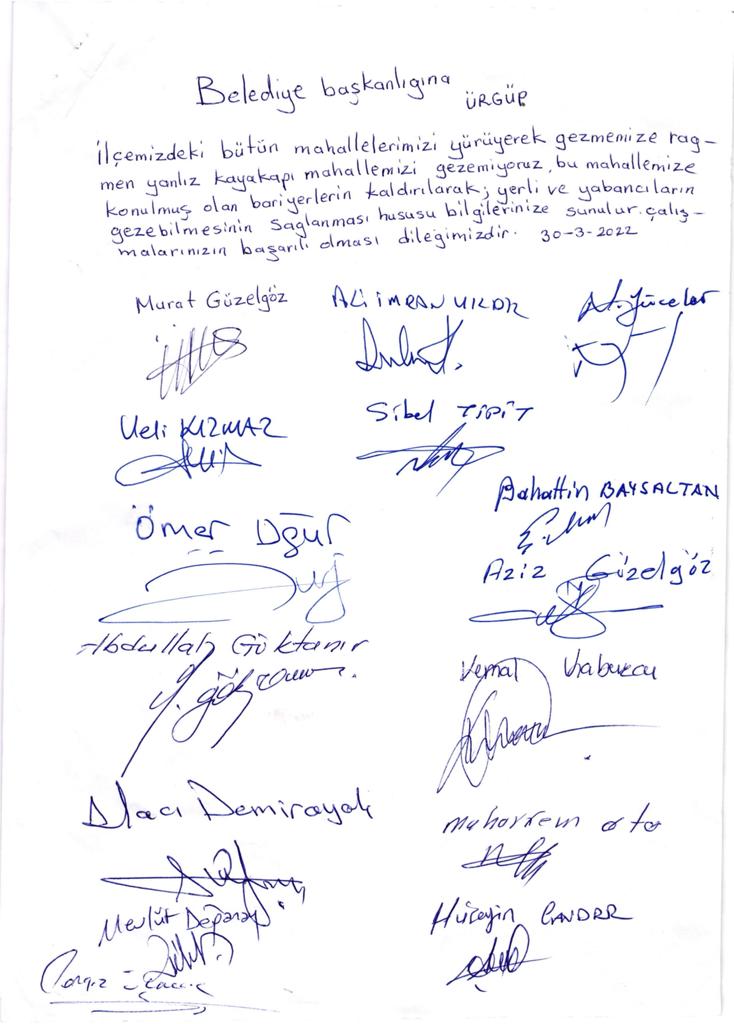 Belediye başkanlıgına
ÜRGÜP
ilçemizdeki bütün mahallelerimizi yürüyerek gezmemize rag-
men yanlız kayakapı mahallemizi gezemiyoruz, bu mahallemize
konulmuş olan bariyerlerin kaldırılarak; yerli ve yabancıların
gezebilmesinin saglanması hususu bilgilerinize sunulur. çalış-
malarınızın başarılı olması dilegimizdir. 30-3-2022
Murat Güzelgöz
ALi iMRAN
Yüceler
Veli KIZMAZ
Sibel
Bahattin BAYSALTAN
Ömer Uğur
Aziz Güzelgöz
Abdullah Göktanır
Kemal
Hacı Demirayak
Muharrem orta
Mevlüt
Hüseyin CANDAR